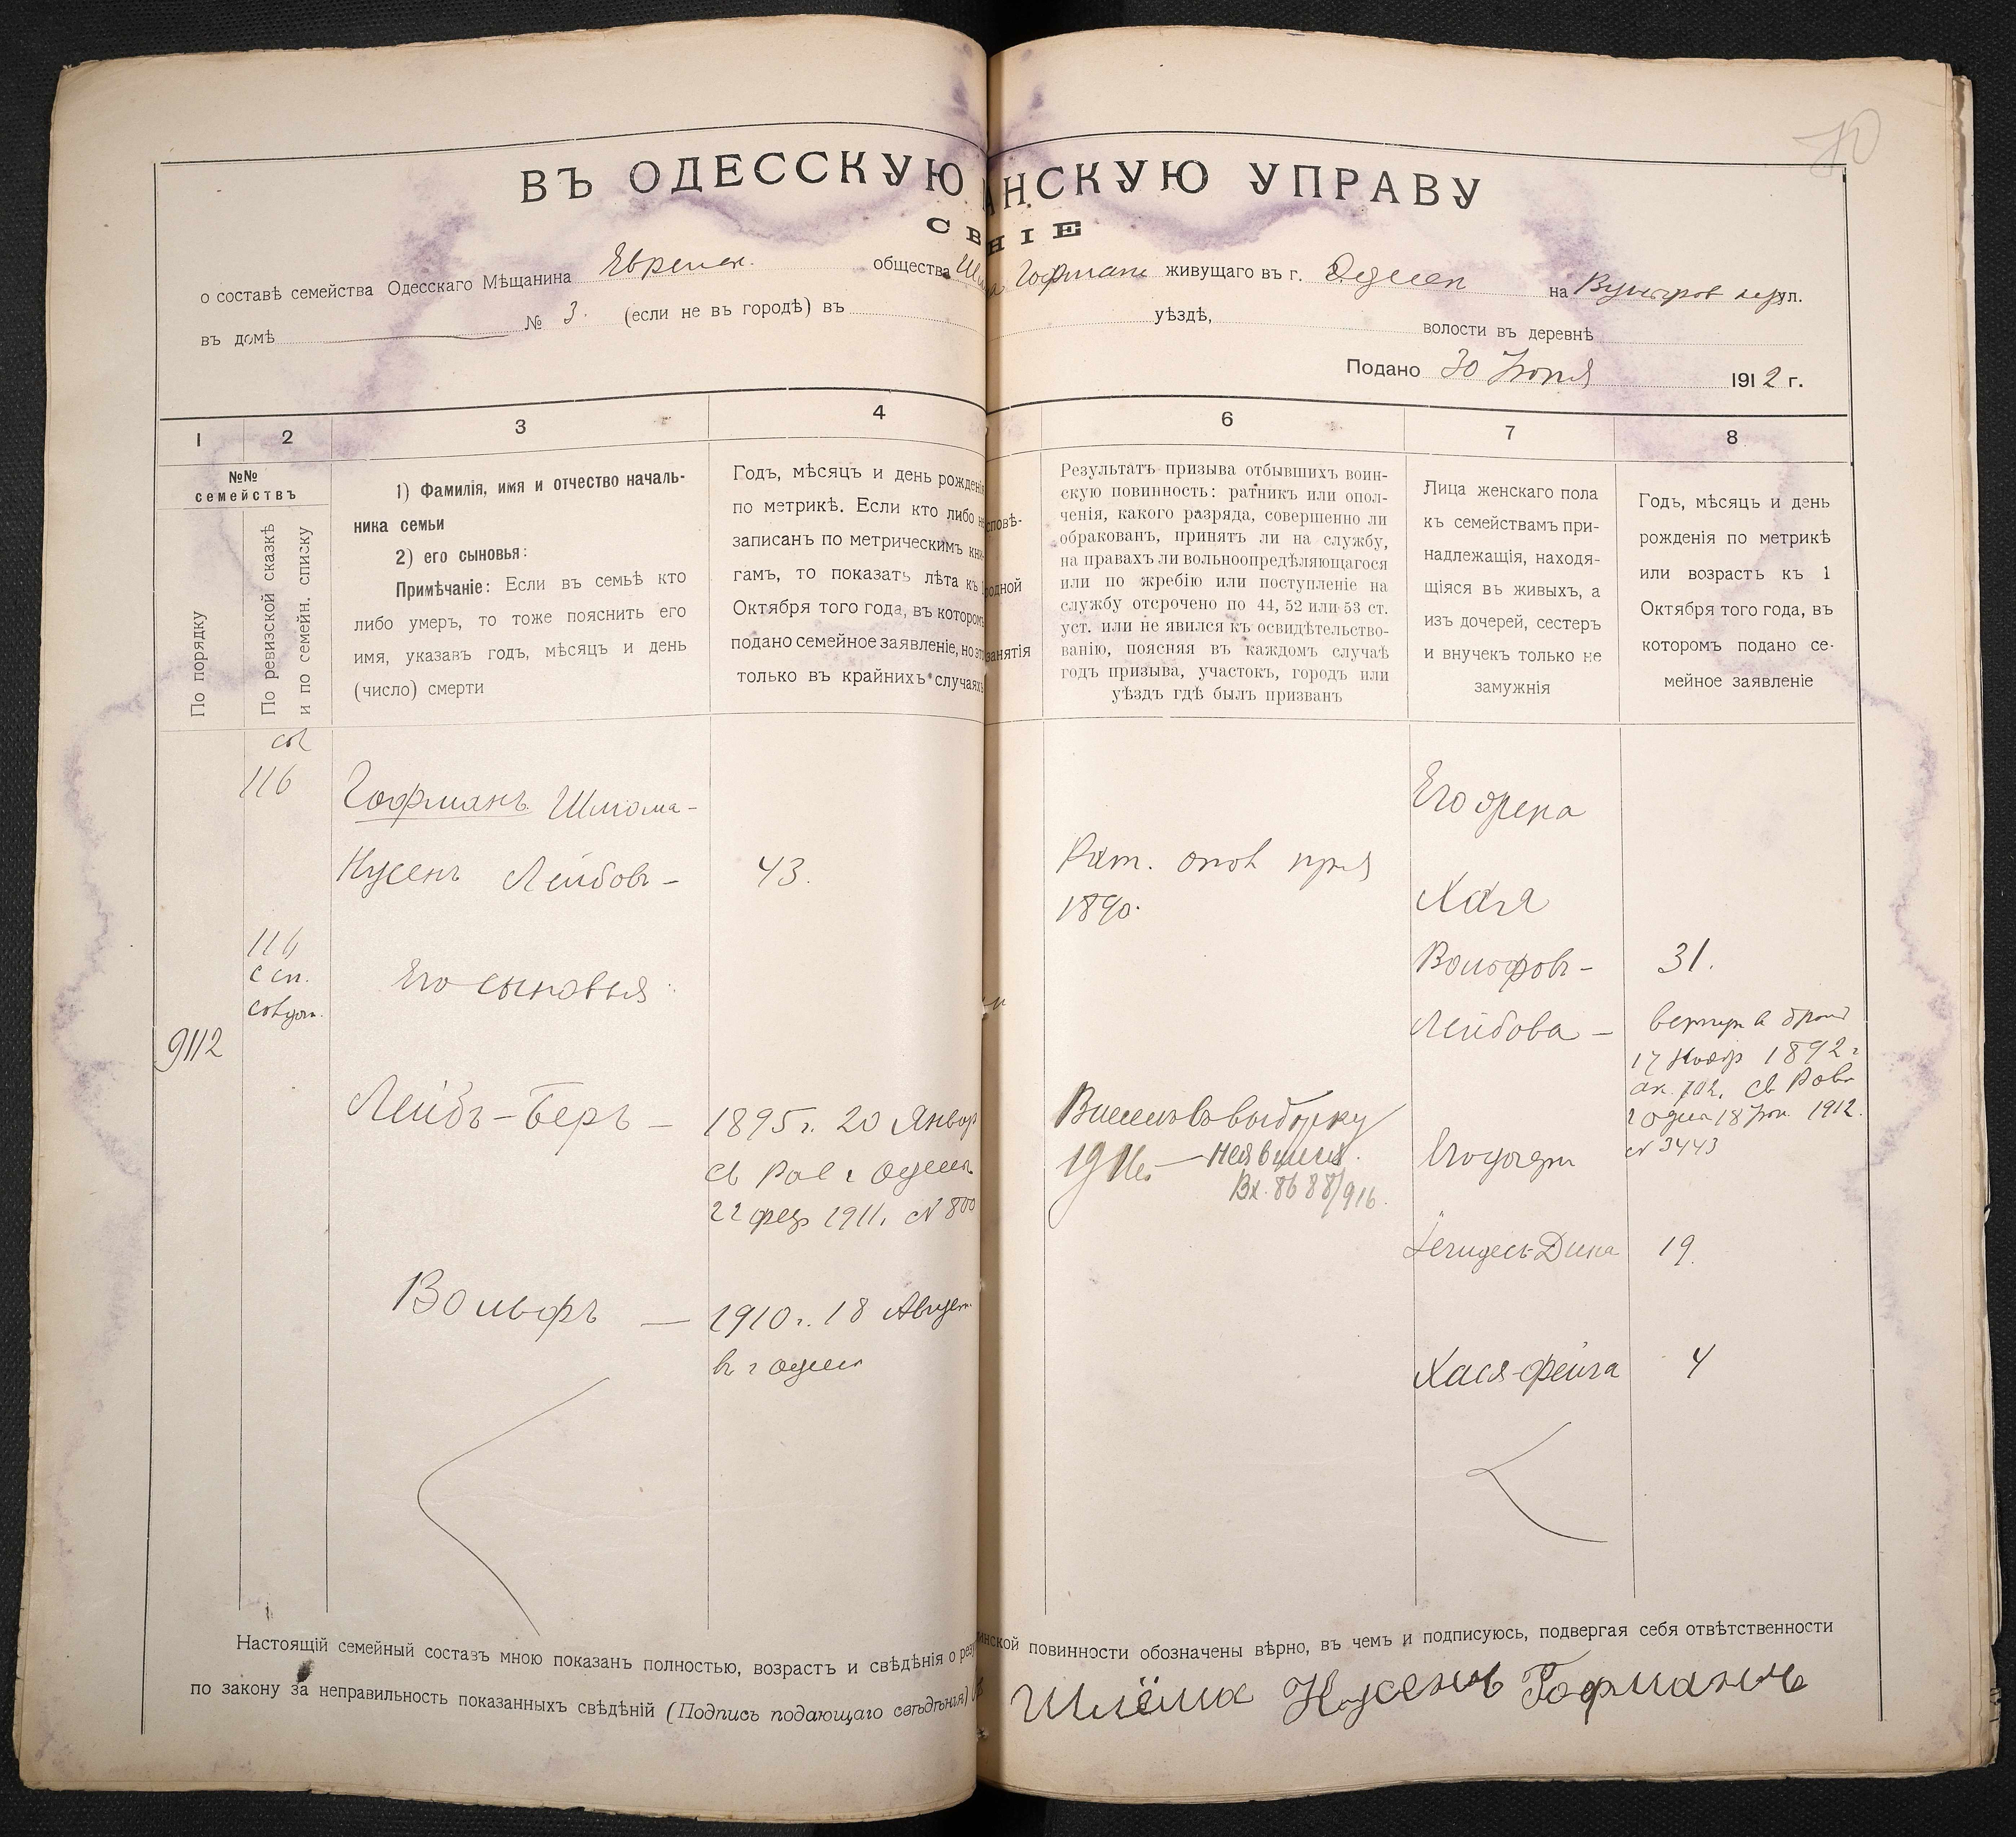 70
ВЪ ОДЕССКУЮ НСКУЮ УПРАВУ
СВ НІЕ
о составѣ семейства Одесскаго Мѣщанина Еврейск. общества Гофмана живущаго въ г. Одессѣ на ул.
въ домѣ № 3. (если не въ городѣ) въ уѣздѣ, волости въ деревнѣ
Подано 30 1912 г.
1 2 3 4 6 7 8
№№
семействъ
По порядку
По ревизской сказкѣ
и по семейн. списку
1) Фамилія, имя и отчество началь-
ника семьи
2) его сыновья:
Примѣчаніе: Если въ семьѣ кто
либо умеръ, то тоже пояснить его
имя, указавъ годъ, мѣсяцъ и день
(число) смерти
Годъ, мѣсяцъ и день рожденія
по метрикѣ. Если кто либо не
записанъ по метрическимъ кни-
гамъ, то показать лѣта къ 1
Октября того года, въ которомъ
подано семейное заявленіе, но это
только въ крайнихъ случаяхъ
сповѣ-
одной
занятія
Результатъ призыва отбывшихъ воин-
скую повинность: ратникъ или опол-
ченія, какого разряда, совершенно ли
обракованъ, принятъ ли на службу,
на правахъ ли вольноопредѣляющагося
или по жребію или поступленіе на
службу отсрочено по 44, 52 или 53 ст.
уст. или не явился къ освидѣтельство-
ванію, поясняя въ каждомъ случаѣ
годъ призыва, участокъ, городъ или
уѣздъ гдѣ былъ призванъ
Лица женскаго пола
къ семействамъ при-
надлежащія, находя-
щіяся въ живыхъ, а
изъ дочерей, сестеръ
и внучекъ только не
замужнія
Годъ, мѣсяцъ и день
рожденія по метрикѣ
или возрастъ къ 1
Октября того года, въ
которомъ подано се-
мейное заявленіе
116
Гофманъ Шлома-
Нусенъ Лейбовъ - 43.
Рат. опол
1890.
Его жена
Хая
Вольфовъ- 31.
Лейбова -
17 Ноябр 1892 г
ак. 702, св Рав
г Одес 18 1912.
№ 3443
116
с сп.
Его сыновья
9112
Лейбъ-Беръ - 1895 г. 20 Январ
св Рав г Одессы
22 февр 1911, № 800
Внесенъ въ выборку
1916г. - Неявился.
Вх. 8688/916.
Его дочери
Гендель-Дина 19.
Вольфъ - 1910 г. 18 Август
в г Одессѣ
Хася-Фейга 4
Настоящій семейный составъ мною показанъ полностью, возрастъ и свѣдѣнія о рез инской повинности обозначены вѣрно, въ чемъ и подписуюсь, подвергая себя отвѣтственности
по закону за неправильность показанныхъ свѣдѣній (Подпись подающаго свѣдѣнія) Шлёма Нусенъ Гофманъ